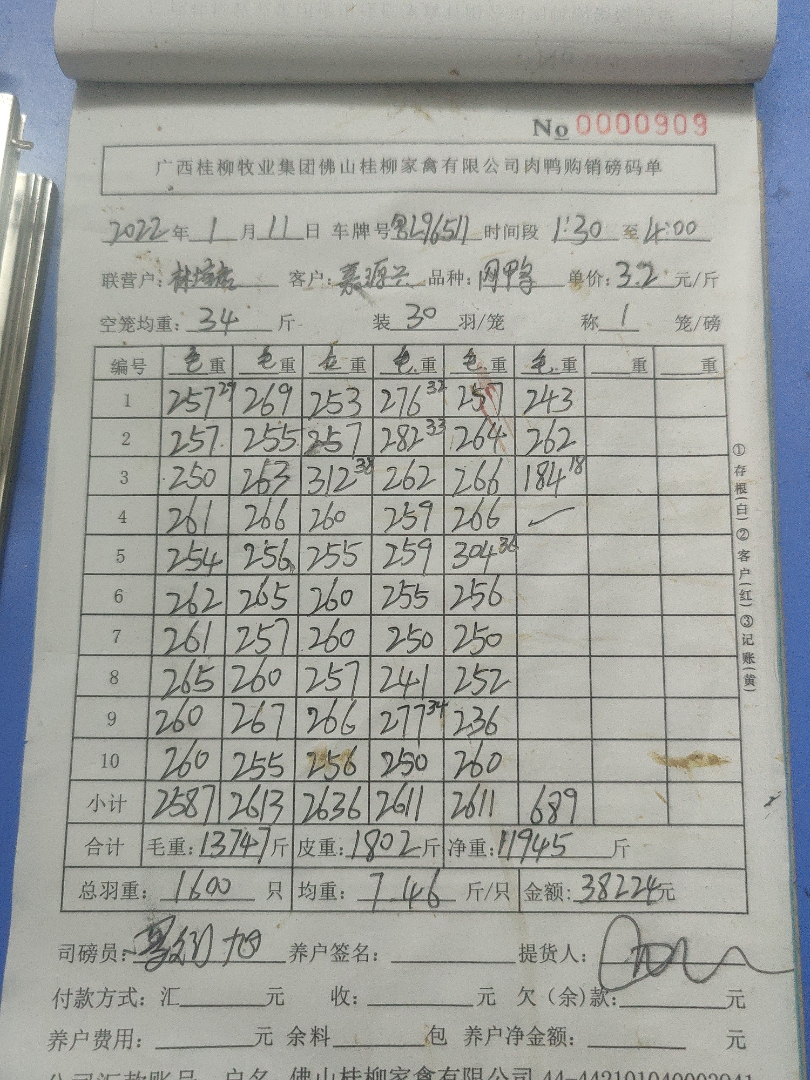 No 0000909
广西桂柳牧业集团佛山桂柳家禽有限公司肉鸭购销磅码单
2022年 1 月 11 日 车牌号 粤L96511 时间段 1:30 至 4:00
联营户: 客户: 嘉源兴 品种: 肉鸭 单价: 3.2 元/斤
空笼均重: 34 斤 装 30 羽/笼 称 1 笼/磅
编号 毛重 毛重 毛重 毛重 毛重 毛重 重 重
1 257 29 269 253 276 32 257 243
2 257 255 257 282 33 264 262
3 250 263 312 38 262 266 184 18
4 261 266 260 259 266
5 254 256 255 259 304 36
6 262 265 260 255 256
7 261 257 260 250 250
8 265 260 257 241 252
9 260 267 266 277 34 236
10 260 255 256 250 260
小计 2587 2613 2636 2611 2611 689
合计 毛重: 13747斤 皮重: 1802斤 净重: 11945 斤
总羽重: 1600 只 均重: 7.46 斤/只 金额: 38224元
司磅员: 养户签名: 提货人:
付款方式: 汇 元 收: 元 欠(余)款: 元
养户费用: 元 余料 包 养户净金额: 元
①存根(白)②客户(红)③记账(黄)